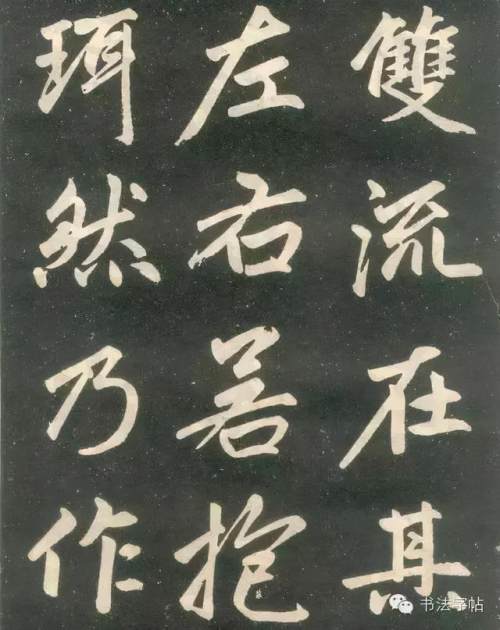 雙流在其
左右若抱
珥然乃作
书法字帖